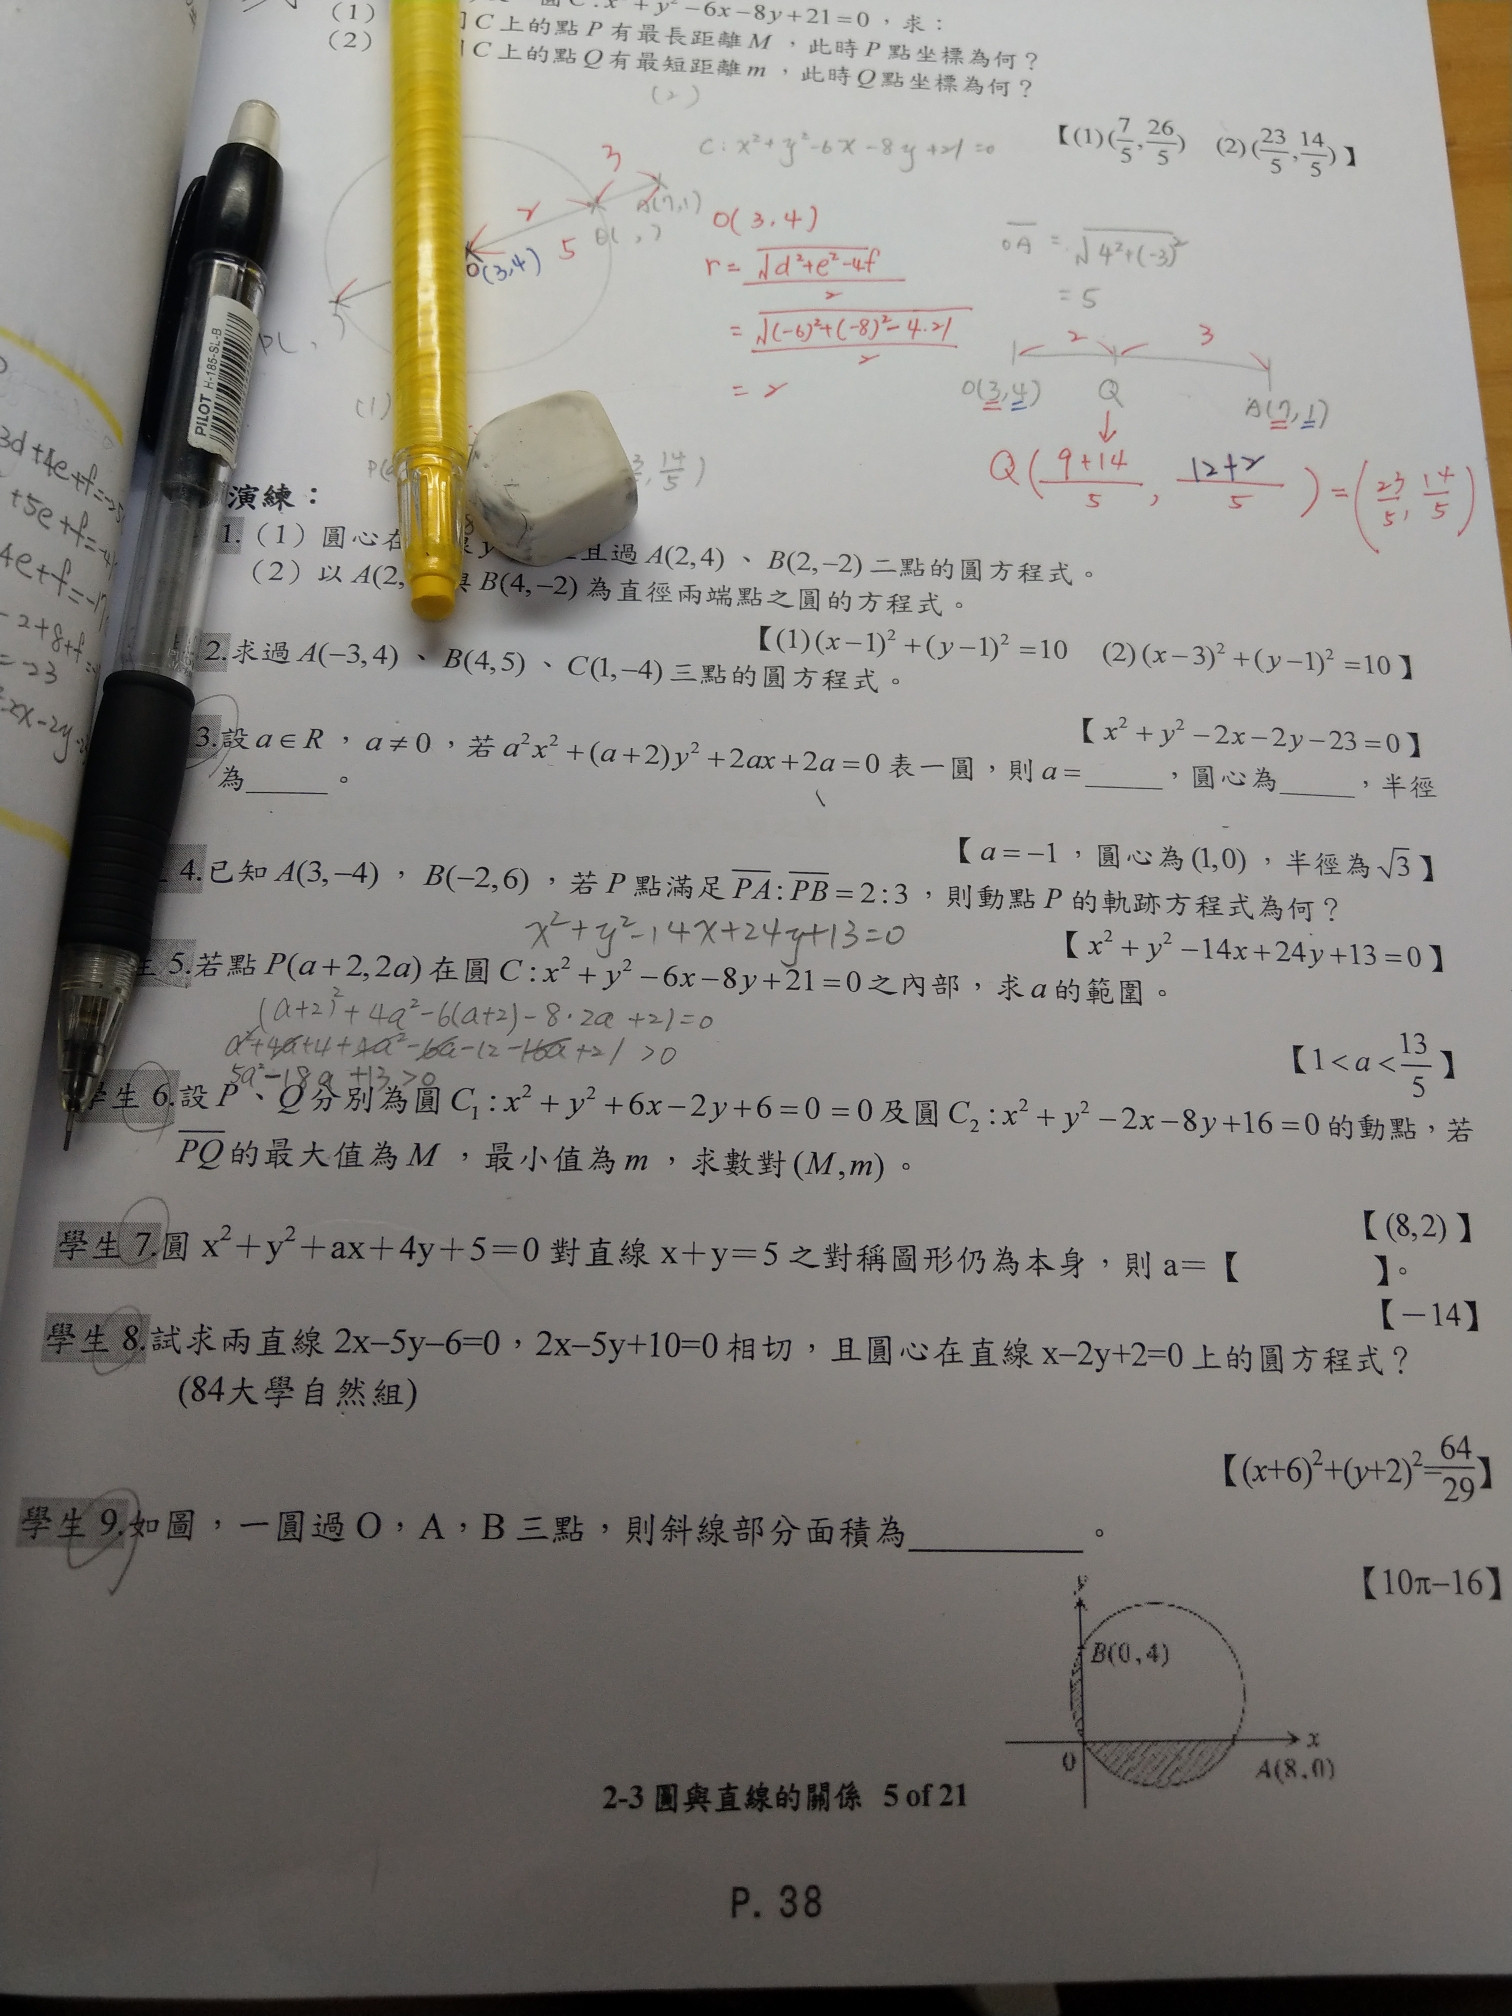 (1) C 上的點 P 有最長距離 M ，此時 P 點坐標為何？
(2) C 上的點 Q 有最短距離 m ，此時 Q 點坐標為何？
+y²−6x−8y+21=0，求：
(2)
C：x²+y²-6x-8y+21=0
【(1)(7/5, 26/5) (2)(23/5, 14/5)】
3
r
5
A(7,1)
O(3,4)
O(3,4)
r=√(d²+e²-4f)/2
=√((-6)²+(-8)²-4·21)/2
=2
OA = √(4²+(-3)²)
= 5
2 3
O(3,4) Q A(7,1)
Q(9+14/5, 12+2/5)=(23/5, 14/5)
(1)
14/5)
PILOT H-185-SL-B
3d+4e+f=-25
+5e+f=-41
4e+f=-17
-2+8+f
=-23
演練：
1.（1）圓心在 且過 A(2,4) 、 B(2,−2) 二點的圓方程式。
（2）以 A(2, 與 B(4,−2) 為直徑兩端點之圓的方程式。
【(1)(x−1)²+(y−1)²=10 (2)(x−3)²+(y−1)²=10】
2.求過 A(−3,4) 、 B(4,5) 、 C(1,−4) 三點的圓方程式。
【x²+y²−2x−2y−23=0】
3.設 a∈R ， a≠0 ，若 a²x²+(a+2)y²+2ax+2a=0 表一圓，則 a=_____，圓心為_____，半徑
為_____。
【a=−1，圓心為(1,0)，半徑為√3】
4.已知 A(3,−4) ， B(−2,6) ，若 P 點滿足 PA:PB=2:3 ，則動點 P 的軌跡方程式為何？
x²+y²-14x+24y+13=0
【x²+y²−14x+24y+13=0】
生 5.若點 P(a+2,2a) 在圓 C:x²+y²−6x−8y+21=0 之內部，求 a 的範圍。
(a+2)²+4a²-6(a+2)-8·2a+21=0
a²+4a+4+4a²-6a-12-16a+21>0
5a²-18a+13>0
【1<a<13/5】
學生 6.設 P 、 Q 分別為圓 C₁:x²+y²+6x−2y+6=0=0 及圓 C₂:x²+y²−2x−8y+16=0 的動點，若
PQ 的最大值為 M ，最小值為 m ，求數對 (M,m) 。
【(8,2)】
學生 7.圓 x²+y²+ax+4y+5=0 對直線 x+y=5 之對稱圖形仍為本身，則 a=【 】。
【－14】
學生 8.試求兩直線 2x–5y–6=0，2x–5y+10=0 相切，且圓心在直線 x–2y+2=0 上的圓方程式？
(84大學自然組)
【(x+6)²+(y+2)²=64/29】
學生 9.如圖，一圓過 O，A，B 三點，則斜線部分面積為__________。
【10π–16】
y
B(0,4)
x
O
A(8,0)
2-3 圓與直線的關係 5 of 21
P. 38